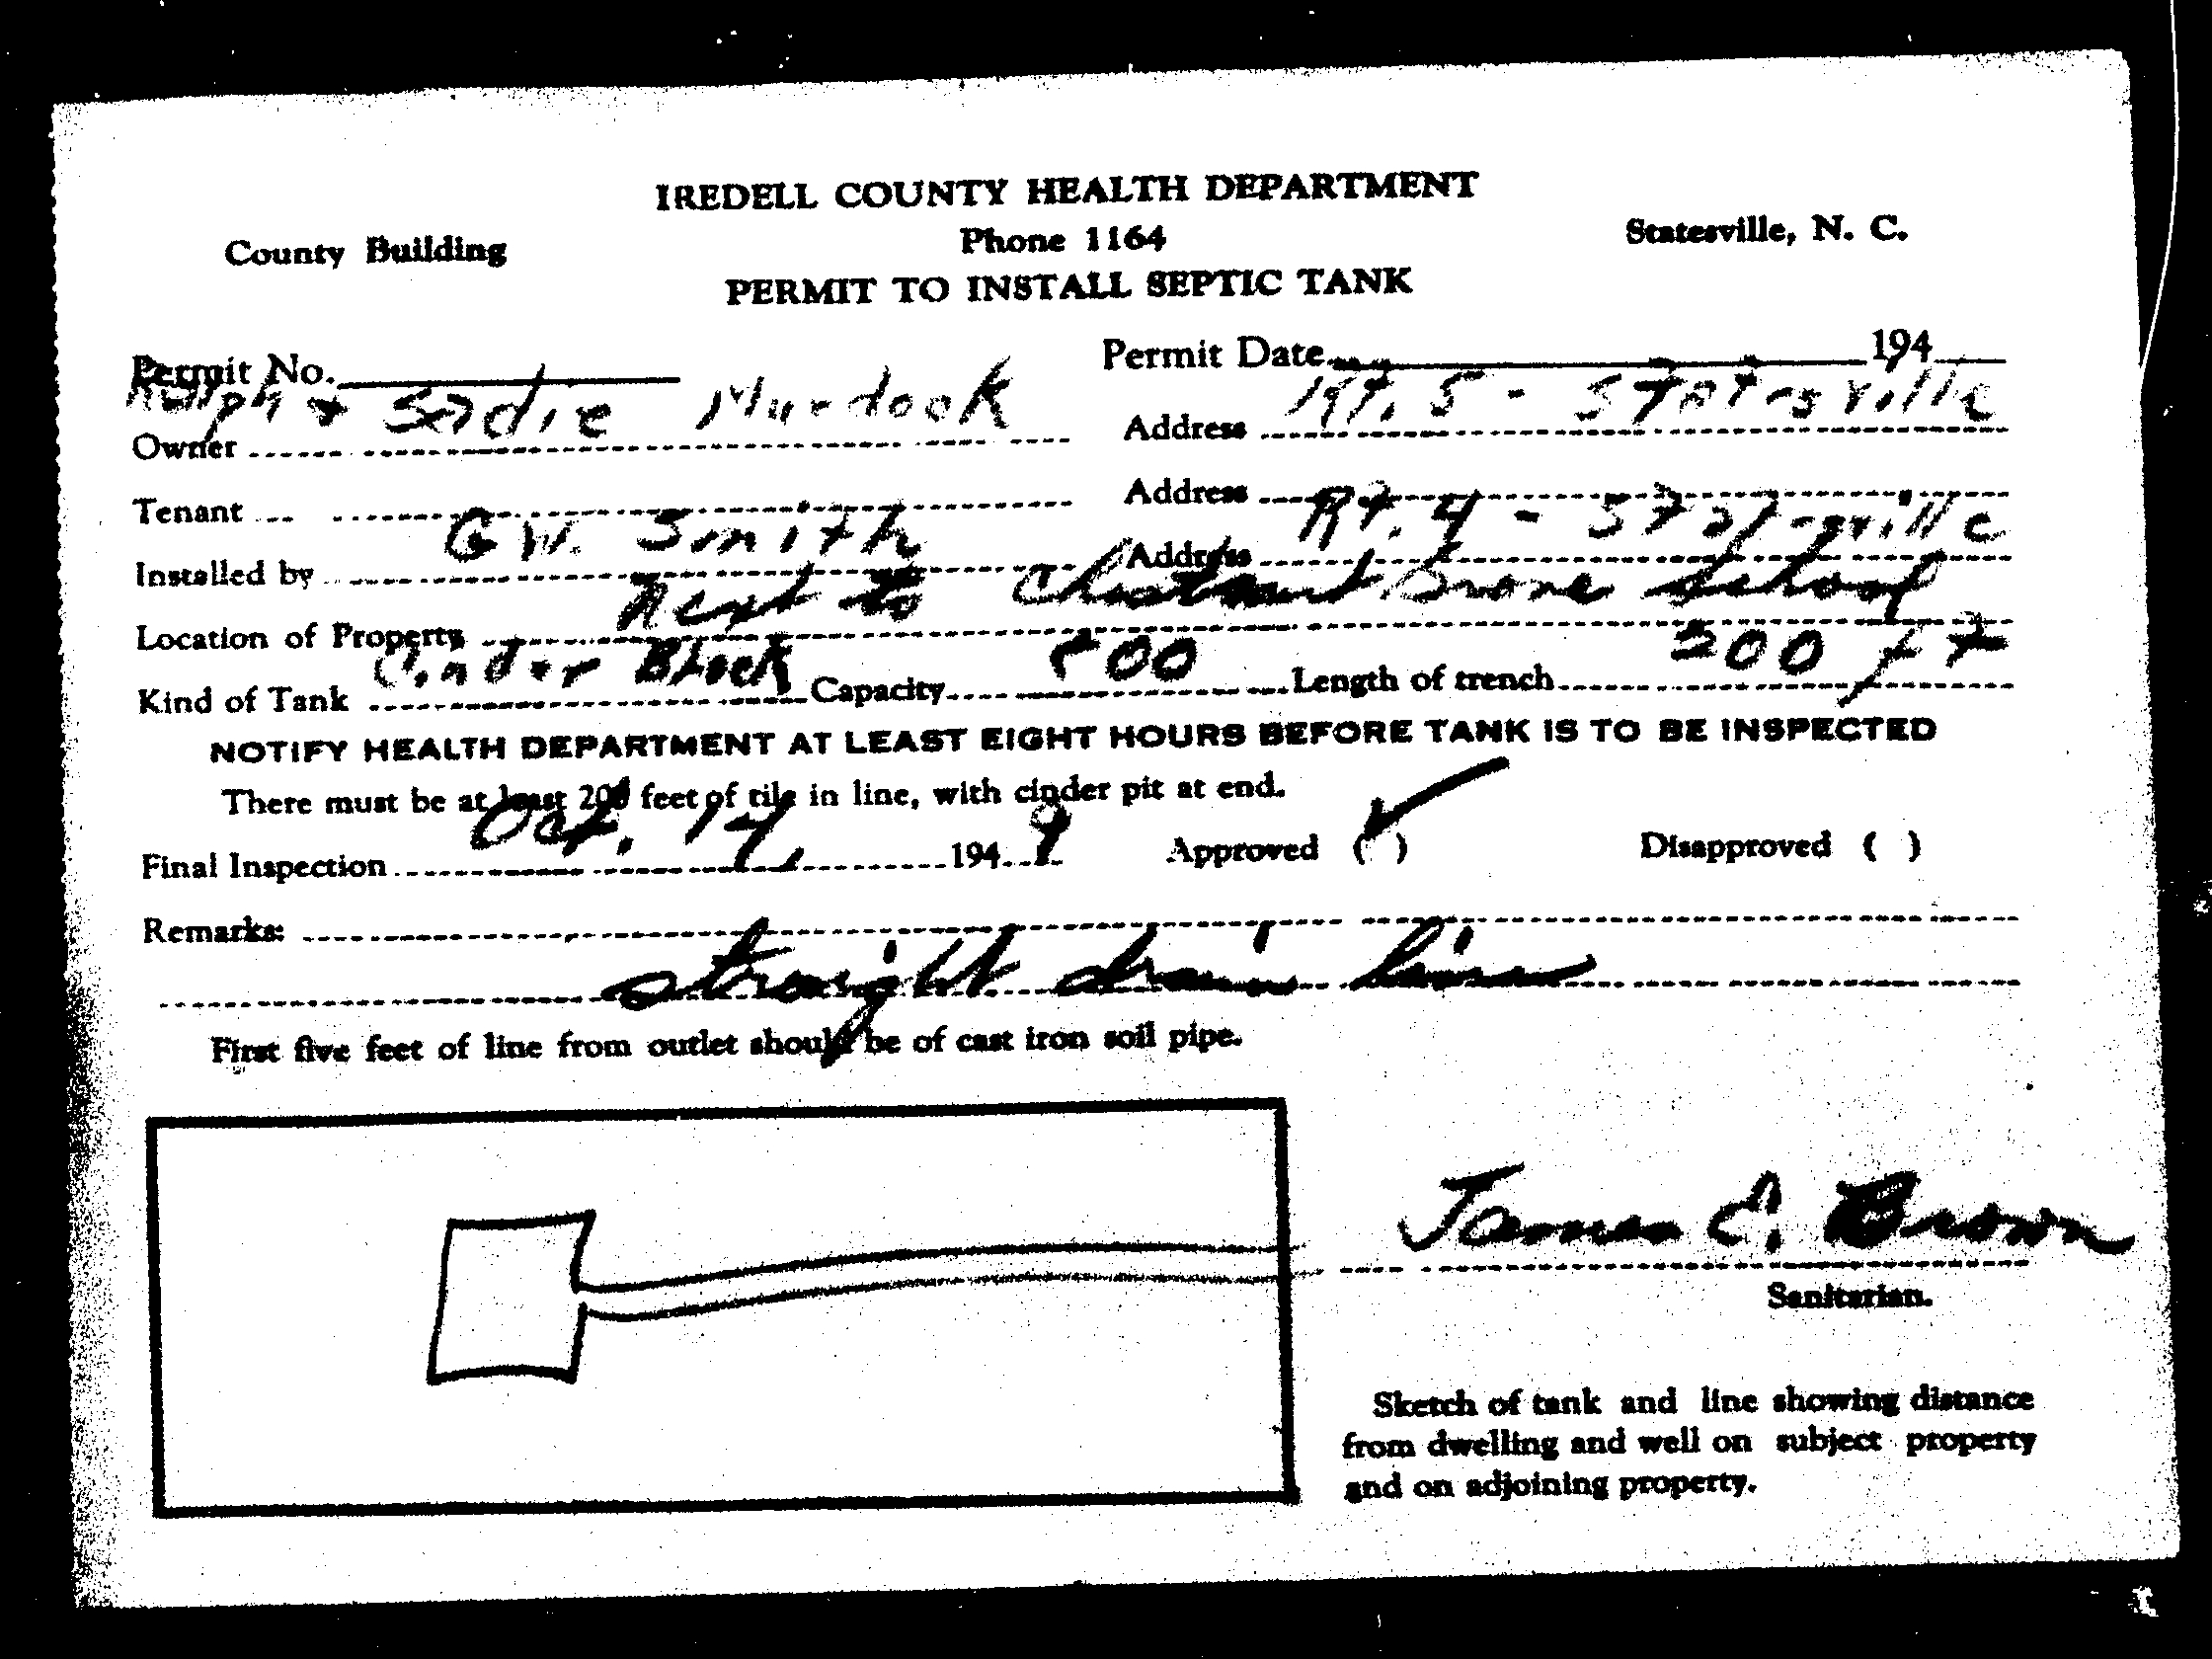 IREDELL COUNTY HEALTH DEPARTMENT
County Building Phone 1164 Statesville, N. C.
PERMIT TO INSTALL SEPTIC TANK
Permit No. Permit Date 194
Owner Ralph & Sadie Murdock Address Rt. 5 - Statesville
Tenant Address
Installed by G W. Smith Address Rt. 4 - Statesville
Location of Property Next to Chestnut Grove School
Kind of Tank Cinder Block Capacity 00 Length of trench 200 ft
NOTIFY HEALTH DEPARTMENT AT LEAST EIGHT HOURS BEFORE TANK IS TO BE INSPECTED
There must be at least 200 feet of tile in line, with cinder pit at end.
Final Inspection Oct. 17, 1949 Approved (✓) Disapproved ( )
Remarks:
straight drain line
First five feet of line from outlet should be of cast iron soil pipe.
James C. Brown
Sanitarian.
Sketch of tank and line showing distance
from dwelling and well on subject property
and on adjoining property.